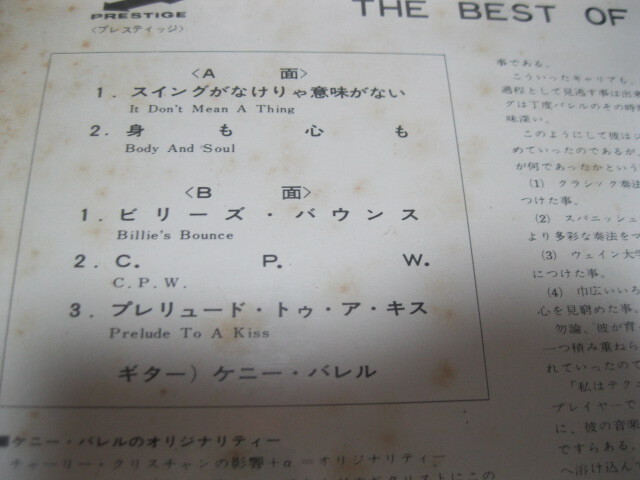 PRESTIGE
〈プレスティッジ〉
THE BEST OF
〈A 面〉
1. スイングがなけりゃ意味がない
It Don't Mean A Thing
2. 身も心も
Body And Soul
〈B 面〉
1. ビリーズ・バウンス
Billie's Bounce
2. C. P. W.
C. P. W.
3. プレリュード・トゥ・ア・キス
Prelude To A Kiss
ギター) ケニー・バレル
■ケニー・バレルのオリジナリティー
チャーリー・クリスチャンの影響+α=オリジナリティー
事である。
こういったキャリアも、
過程として見過す事は出来
グは丁度バレルのその時
味深い。
このようにして彼はジ
めていったのであるが、
が何であったかという
(1) クラシック奏法
つけた事。
(2) スパニッシュ
より多彩な奏法をつ
(3) ウェイン大学
につけた事。
(4) 巾広いいろ
心を見窮めた事。
勿論、彼が育
一つ積み重ねら
れていったので
「私はテク
プレイヤーで
に、彼の音楽
ですらある。
へ溶け込ん